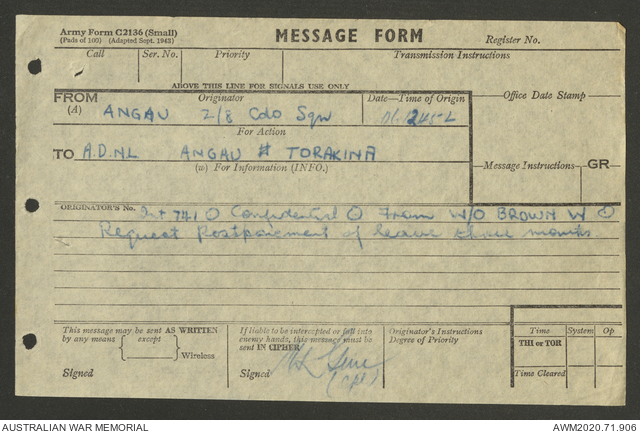 Army Form C2136 (Small)
(Pads of 100) (Adapted Sept. 1943)
MESSAGE FORM
Register No.
Call Ser. No. Priority Transmission Instructions
ABOVE THIS LINE FOR SIGNALS USE ONLY
FROM Originator Date—Time of Origin Office Date Stamp
(A) ANGAU 2/8 Cdo Sqn 1245L
For Action
TO A.D.N.L ANGAU # TORAKINA
(w) For Information (INFO.)
Message Instructions GR
ORIGINATOR'S No. Int 741 Confidential From W/O BROWN W
Request Postponement of leave three months
This message may be sent AS WRITTEN
by any means except
Wireless
Signed
If liable to be intercepted or fall into
enemy hands, this message must be
sent IN CIPHER
Signed
(Cpl)
Originator's Instructions
Degree of Priority
Time System Op
THI or TOR
Time Cleared
AUSTRALIAN WAR MEMORIAL AWM2020.71.906